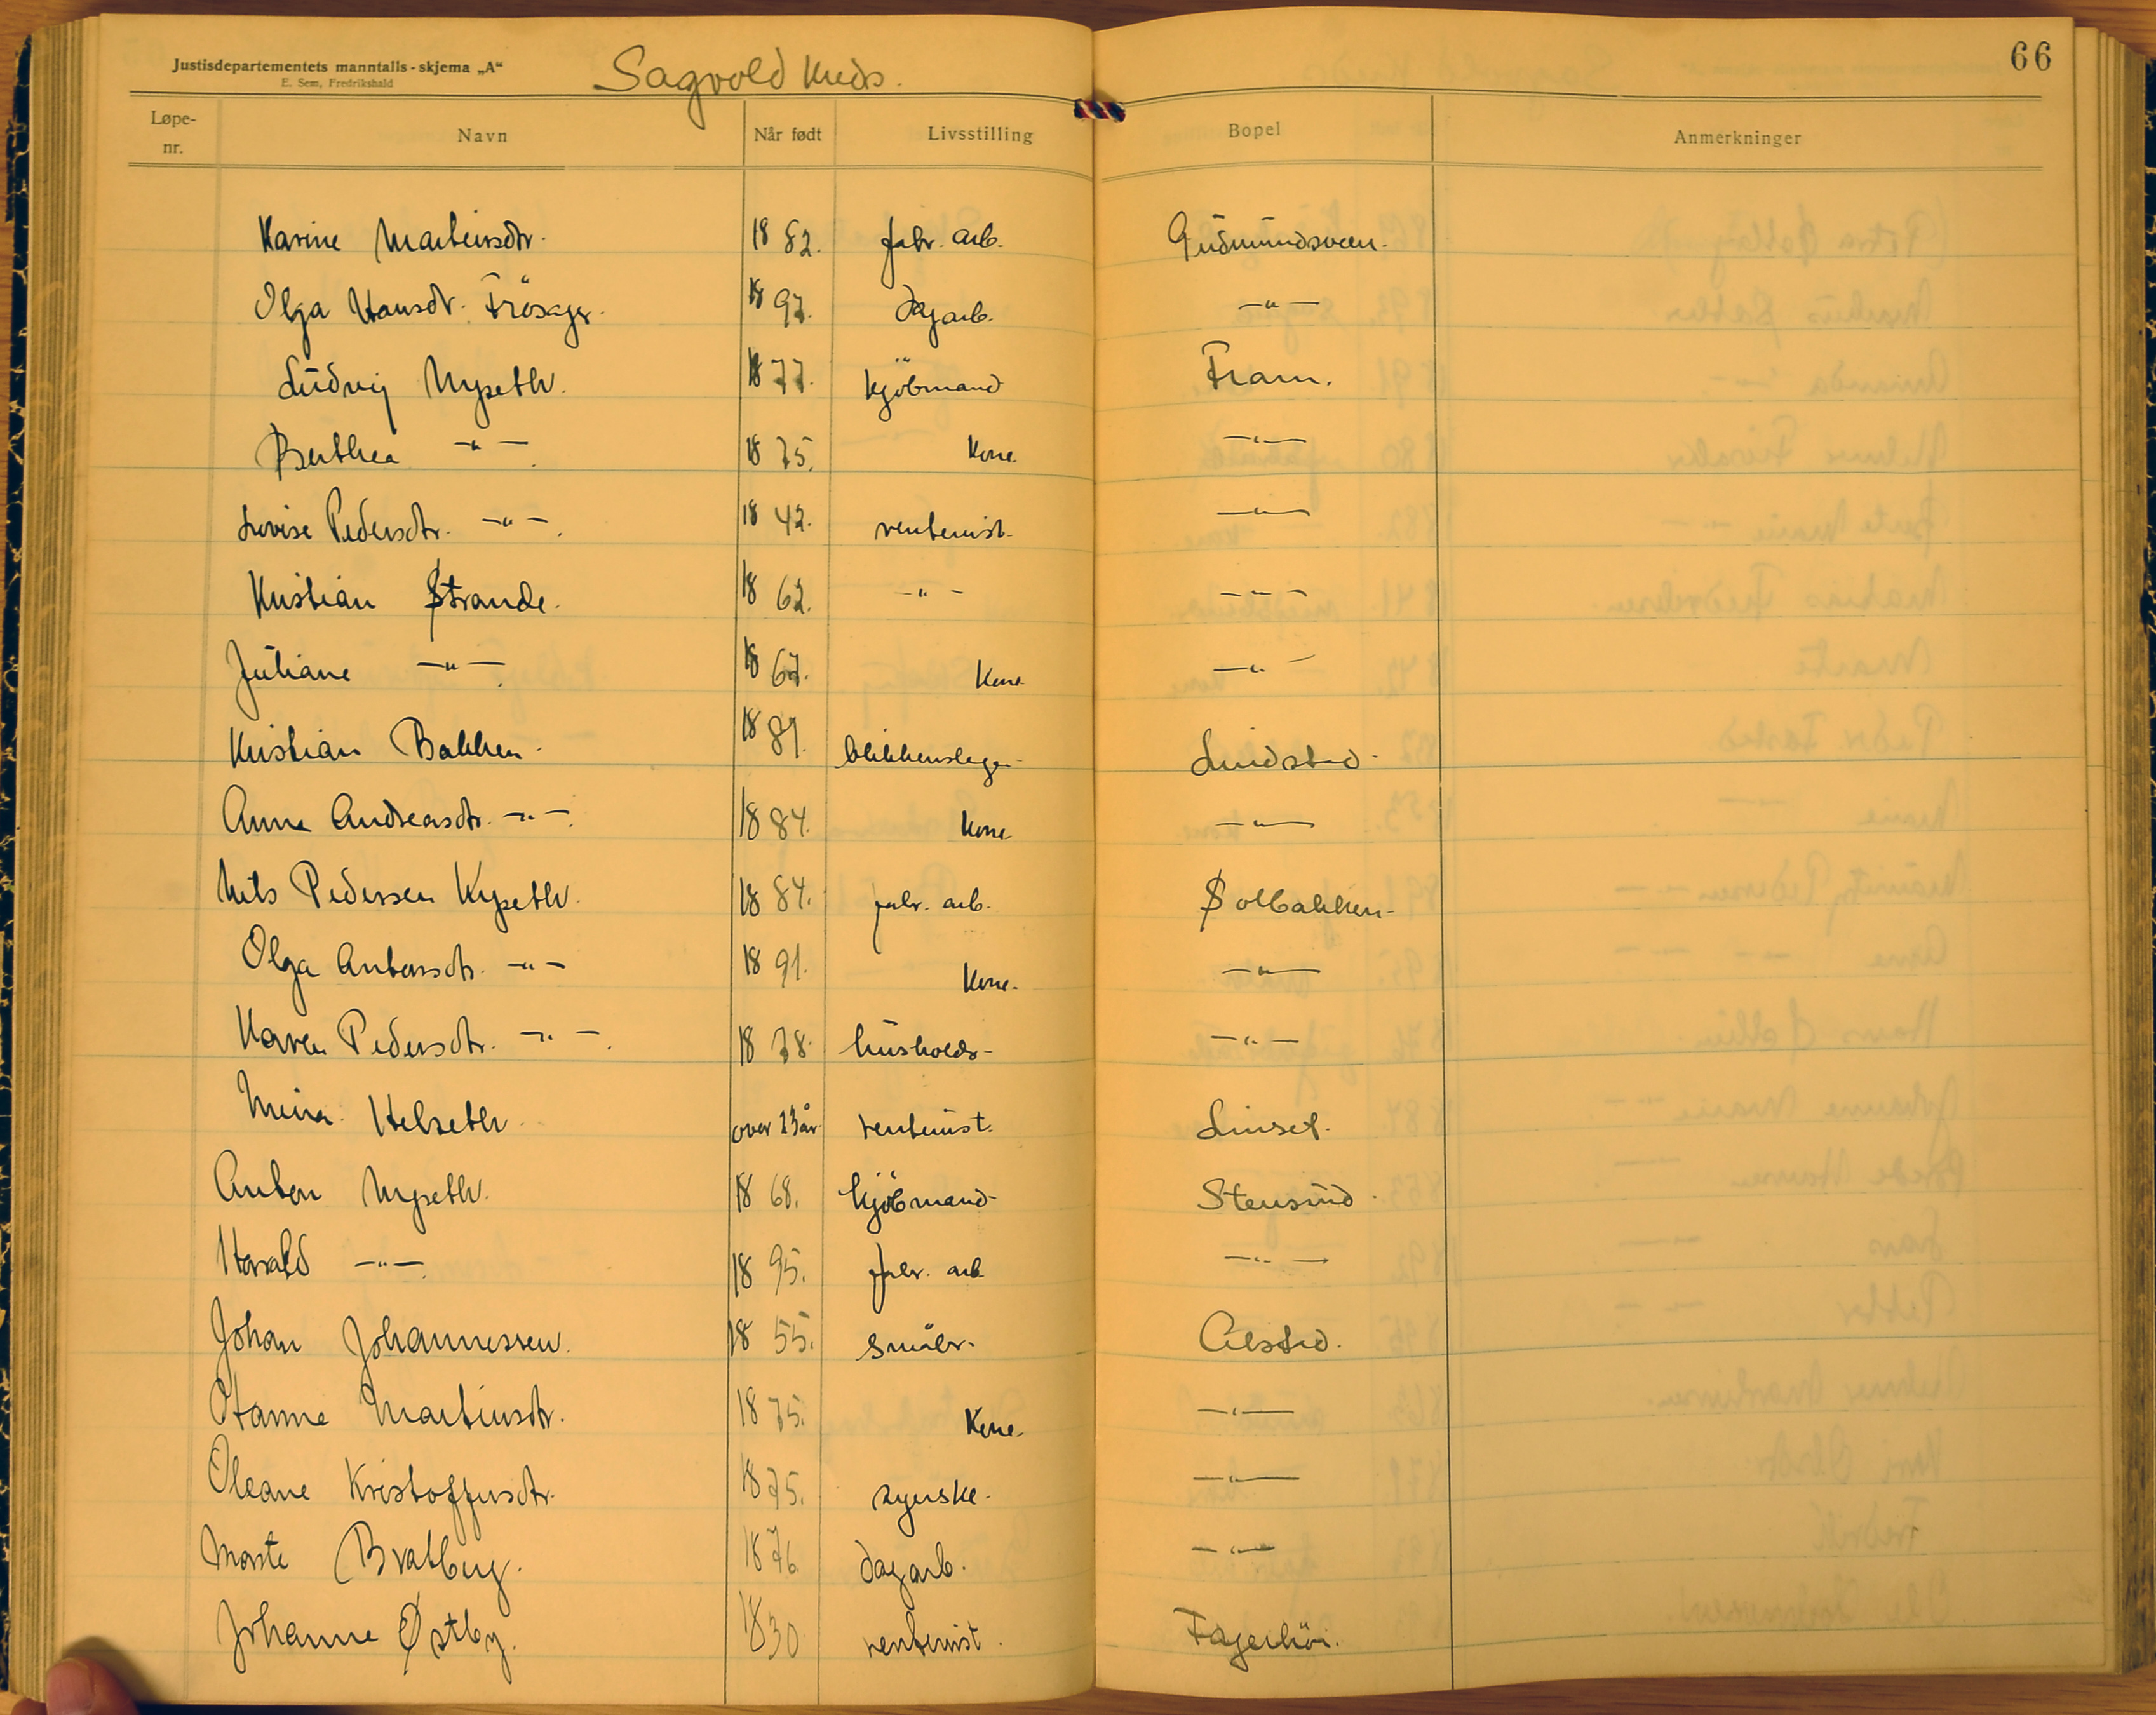 Justisdepartementets manntalls-skjema „A“
E. Sem, Fredrikshald
Sagvold Kreds.
66
Løpe-nr. Navn Når født Livsstilling Bopel Anmerkninger
Karine Martinsdtr. 1882. fabr. arb. Gudmundsveen.
Olga Hansdr. Frösager. 1897. Dagarb. —"—
Ludvig Nypethr. 1877. kjöbmand Fram.
Berthea —"—. 1875. Kone. —"—
Lovise Pedersdtr. —"—. 1842. rentenist. —"—
Kristian Strande. 1862. —"— —"—
Juliane —"—. 1867. Kone —"—
Kristian Bakken. 1881. blikkenslager Lundstad.
Anna Andreasdtr. —"—. 1884. Kone. —"—
Nils Pedersen Nypethr. 1884. fabr. arb. Solbakken.
Olga Antonsdtr. —"— 1891. Kone. —"—
Karen Pedersdtr. —"—. 1878. husholds- —"—
Helsethr over 23 år. rentenist.
Anton Nypethr. 1868. kjöbmand Stensrud.
Harald —"—. 1895. fabr. arb —"—
Johan Johannessen. 1855. småbr. Alstad.
Hanna Martinsdtr. 1875. Kone. —"—
Oleane Kristoffersdtr. 1875. syerske. —"—
Marte Bratberg. 1876 dagarb. —"—
Johanne Østby. 1830 rentenist.